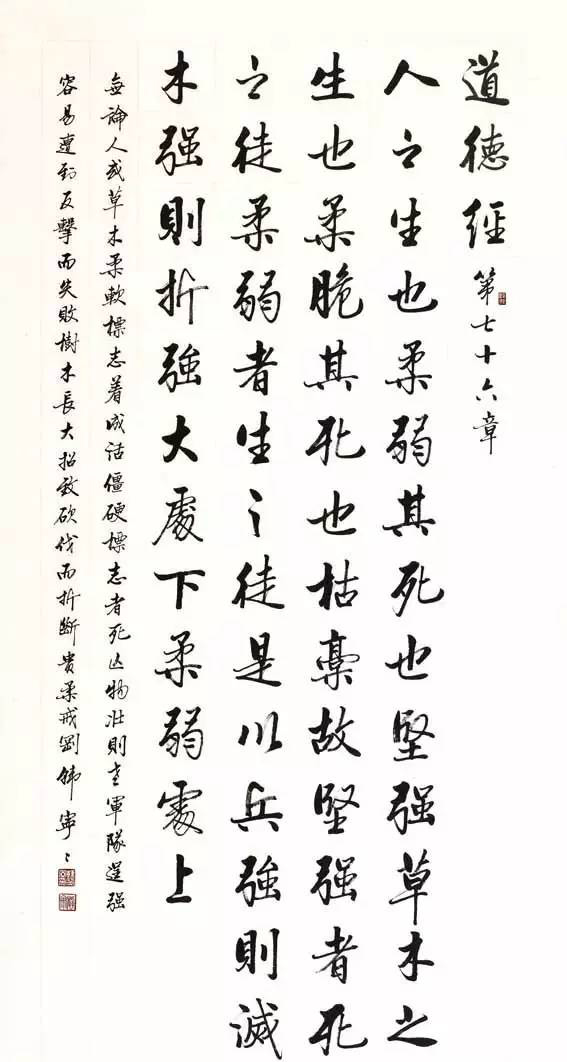 道德經 第七十六章
人之生也柔弱其死也堅强草木之
生也柔脆其死也枯槁故堅强者死
之徒柔弱者生之徒是以兵強則滅
木强則折強大處下柔弱處上
無論人或草木柔軟標志着成活僵硬標志者死亡物壯則老軍隊逞强
容易遭到反擊而失敗樹木長大招致砍伐而折斷貴柔戒剛 韩寧